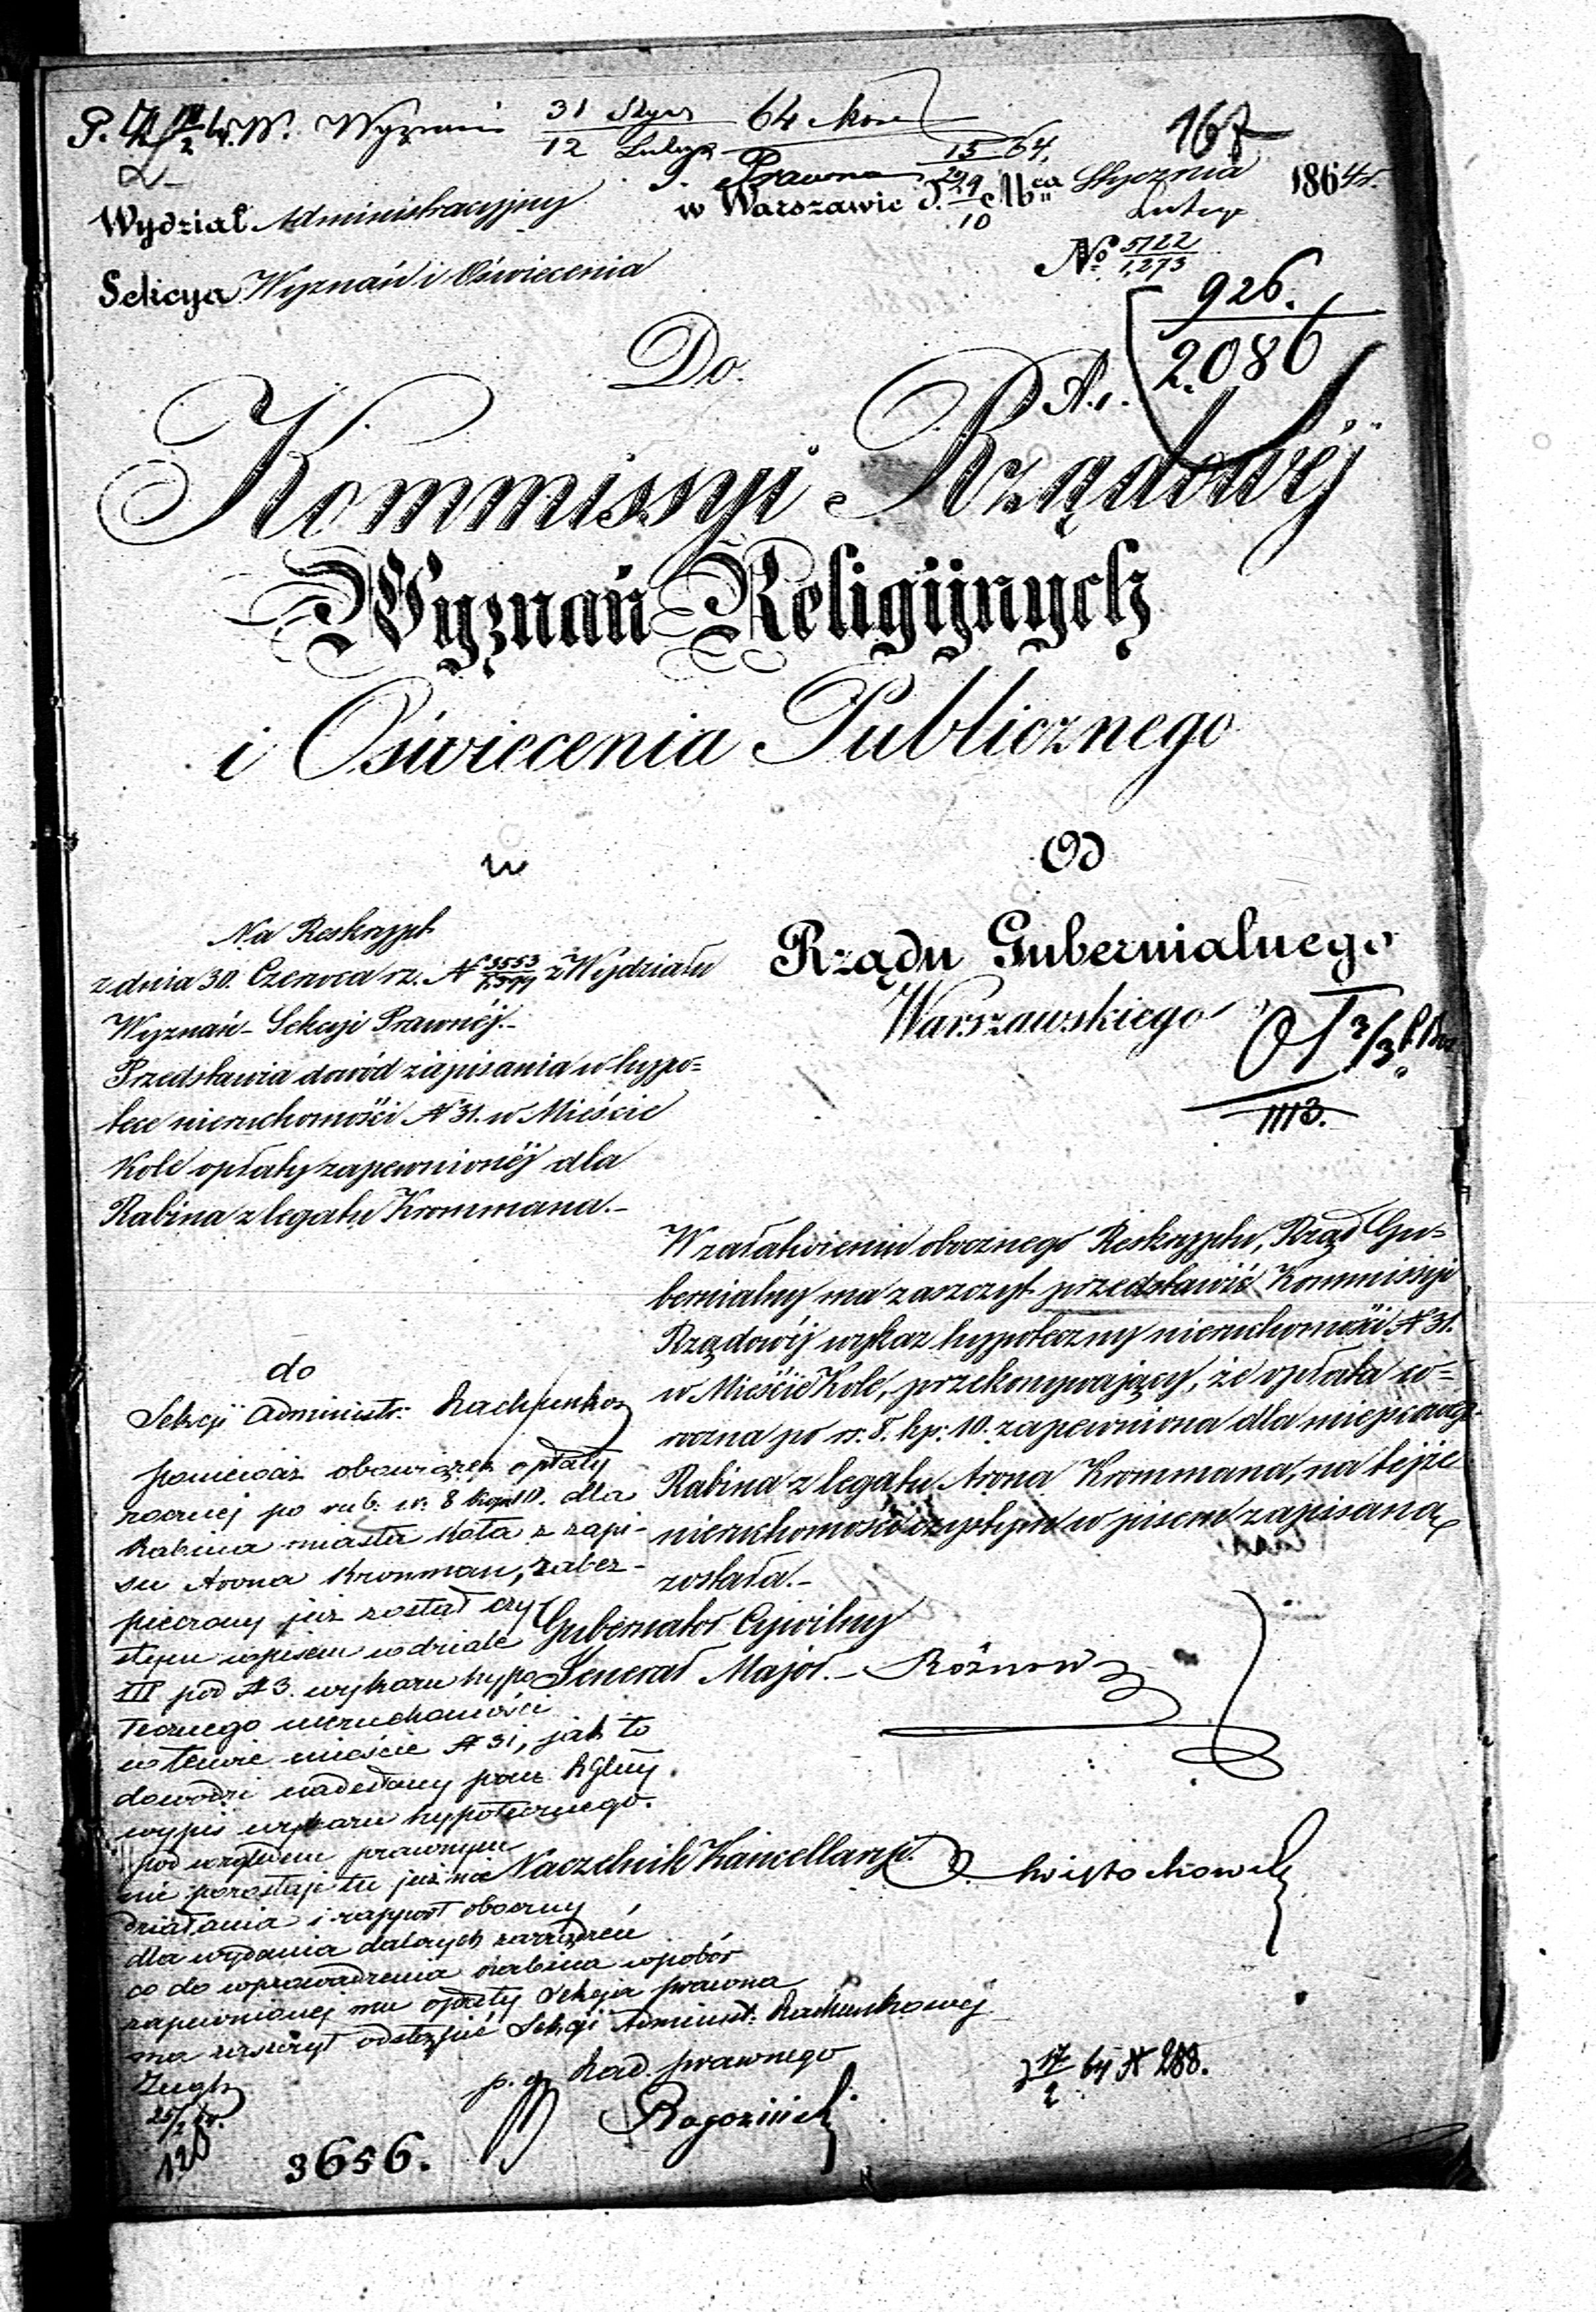 W. Wyznań 31 Stycz 64
12 Lutego
167
S. Prawna 15 64
Wydział Administracyjny
w Warszawie d. 29/10 Mca Stycznia 1864 r.
Lutego
Sekcya Wyznań i Oświecenia
No 5122/1,273
926.
2086
Do
Kommissyi Rządowéj
Wyznań Religijnych
i Oświecenia Publicznego
w
Od
Rządu Gubernialnego
Warszawskiego
1113.
Na Reskrypt
z dnia 30. Czerwca rz. N 3553 z Wydziału
Wyznań - Sekcyi Prawnéj.-
Przedstawia dowód zapisania w hypo=
tece nieruchomości N 31. w Mieście
Kole opłaty zapewnionéj dla
Rabina z legatu Krommana.-
W załatwieniu obocznego Reskryptu, Rząd Gu=
bernialny ma zaszczyt przedstawić Kommissyi
Rządowéj wykaz hypoteczny nieruchomości N 31.
w Mieście Kole, przekonywający, że opłata co=
roczna po rs. 8. kp: 10. zapewniona dla miejscowego
Rabina z legatu Arona Krommana, na tejże
nieruchomości czystym wpisem zapisaną
została.-
Gubernator Cywilny
Generał Major.- Rożnow
Naczelnik Kancellaryi
do
Sekcyi Administr: Rachunkow
ponieważ obowiązek opłaty
rocznej po rub. sr. 8 kop 10. dla
Rabina miasta Koła z zapi-
su Arona Kronman, zabez-
pieczony już został czy-
stym wpisem w dziale
III pod N 3. wykazu hypo
tecznego nieruchomości
w temże mieście N 31, jak to
dowodzi nadesłany przez RGlny
wypis wykazu hypotecznego.
pod względem prawnym
nie pozostaje tu już nic
działania i rapport oboczny
dla wydania dalszych zarządzeń
co do wprowadzenia rabina w pobór
zapewnionej mu opłaty Sekcja prawna
ma zaszczyt odstąpić Sekcyi Administ: Rachunkowej
p. o. Rad. prawnego
25/2
120
3656.
17/2 64 N 288.